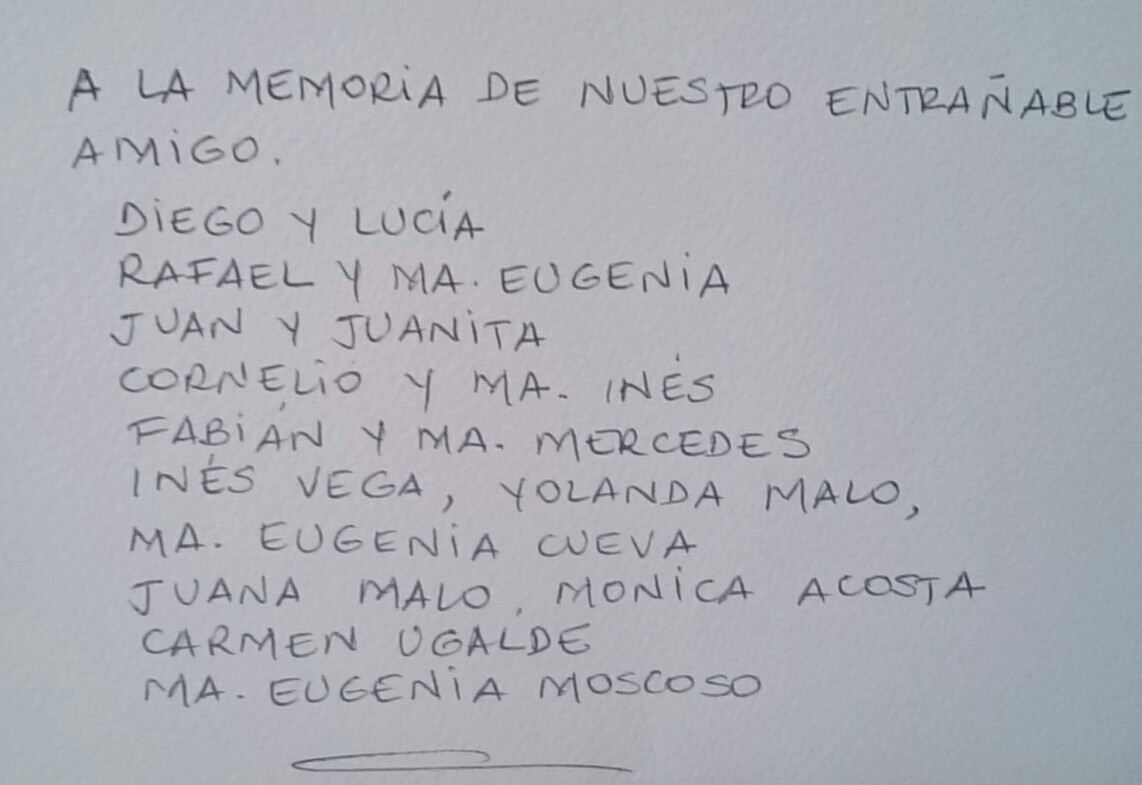 A LA MEMORIA DE NUESTRO ENTRAÑABLE
AMIGO.
DIEGO Y LUCÍA
RAFAEL Y MA. EUGENIA
JUAN Y JUANITA
CORNELIO Y MA. INÉS
FABIÁN Y MA. MERCEDES
INÉS VEGA, YOLANDA MALO,
MA. EUGENIA CUEVA
JUANA MALO, MONICA ACOSTA
CARMEN UGALDE
MA. EUGENIA MOSCOSO